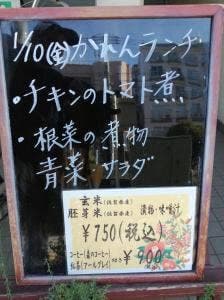 1/10(金)かれんランチ
・チキンのトマト煮
・根菜の煮物
青菜 サラダ
玄米(佐賀県産)
胚芽米(佐賀県産) 漬物・味噌汁
¥750(税込)
コーヒー(森のコーヒー)
紅茶(アールグレイ) つき ¥900